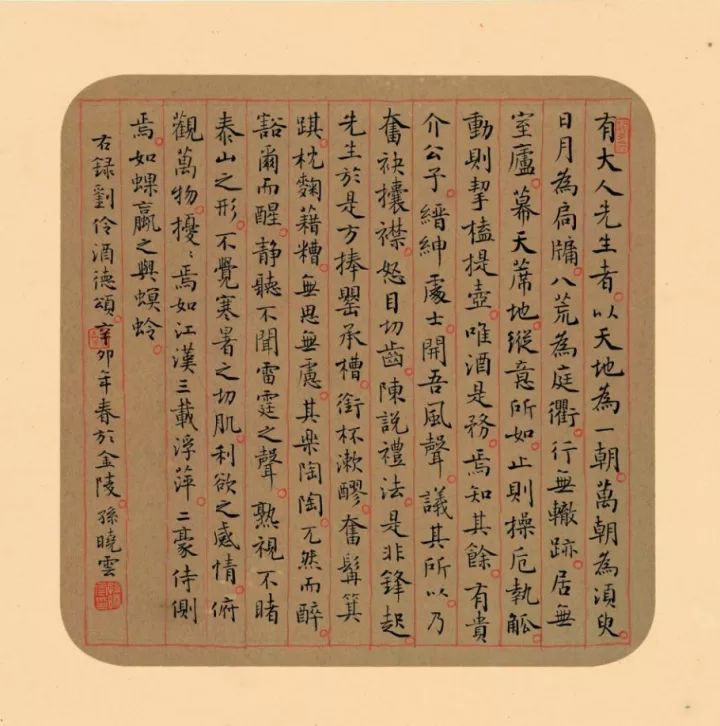 有大人先生者以天地為一朝萬朝為須臾
日月為扃牖八荒為庭衢行無轍跡居無
室廬幕天蓆地縱意所如止則操卮執觚
動則挈榼提壺唯酒是務焉知其餘有貴
介公子縉紳處士開吾風聲議其所以乃
奮袂攘襟怒目切齒陳說禮法是非鋒起
先生於是方捧罌承槽銜杯漱醪奮髯箕
踑枕麴藉糟無思無慮其樂陶陶兀然而醉
豁爾而醒靜聽不聞雷霆之聲熟視不睹
泰山之形不覺寒暑之切肌利欲之感情俯
觀萬物擾〻焉如江漢三載浮萍二豪侍側
焉如蜾蠃之與螟蛉
右錄劉伶酒德頌辛卯年春於金陵孫曉雲